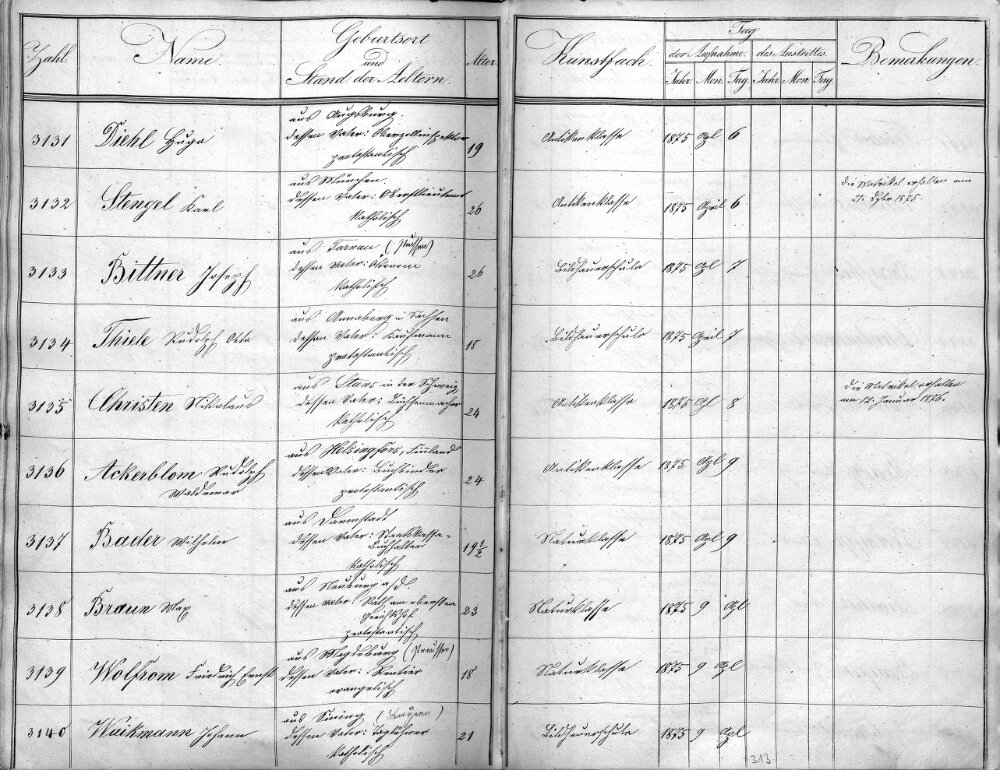 Zahl. Name. Geburtsort und Stand der Aeltern. Alter Kunstfach. Tag der Aufnahme. des Austrittes. Bemerkungen.
Jahr Mon. Tag. Jahr Mon. Tag
3131 Diehl Hugo aus Augsburg. 19 Antikenklasse 1875 Apl 6
dessen Vater: Oberzollinspektor
protestantisch
3132 Stengel Karl aus München 26 Antikenklasse 1875 April 6 Die Matrikel erhalten am
dessen Vater: Oberstlieutenant
katholisch
3133 Bittner Joseph aus Tarnau (Preussen) 26 Bildhauerschule 1875 Apl 7
dessen Vater:
katholisch
3134 Thiele Rudolph Otto aus Annaberg in Sachsen 18 Bildhauerschule 1875 April 7
dessen Vater: Kaufmann
protestantisch
3135 Christen Nikolaus aus Stans in der Schweiz 24 Antikenklasse 1875 Apl 8 Die Matrikel erhalten
dessen Vater: Büchsenmacher am 12. Januar 1876.
katholisch
3136 Ackerblom Rudolph aus Helsingfors, Finnland 24 Antikenklasse 1875 Apl 9
Waldemar dessen Vater: Buchbinder
protestantisch
3137 Bader Wilhelm aus Darmstadt 19 1/2 Naturklasse 1875 Apl 9
dessen Vater: Staatskasse-
buchhalter
katholisch
3138 Braun Max aus Neuburg a/D. 23 Naturklasse 1875 9 Apl
dessen Vater: Rath am obersten
Gerichtshof
protestantisch
3139 Wolfrom Friedrich Ernst aus Magdeburg (Preussen) 18 Naturklasse 1875 9 Apl
dessen Vater: Rentier
evangelisch
3140 Waikmann Johann aus Sining (Bayern) 21 Bildhauerschule 1875 9 Apl
dessen Vater: Taglöhner
katholisch
313